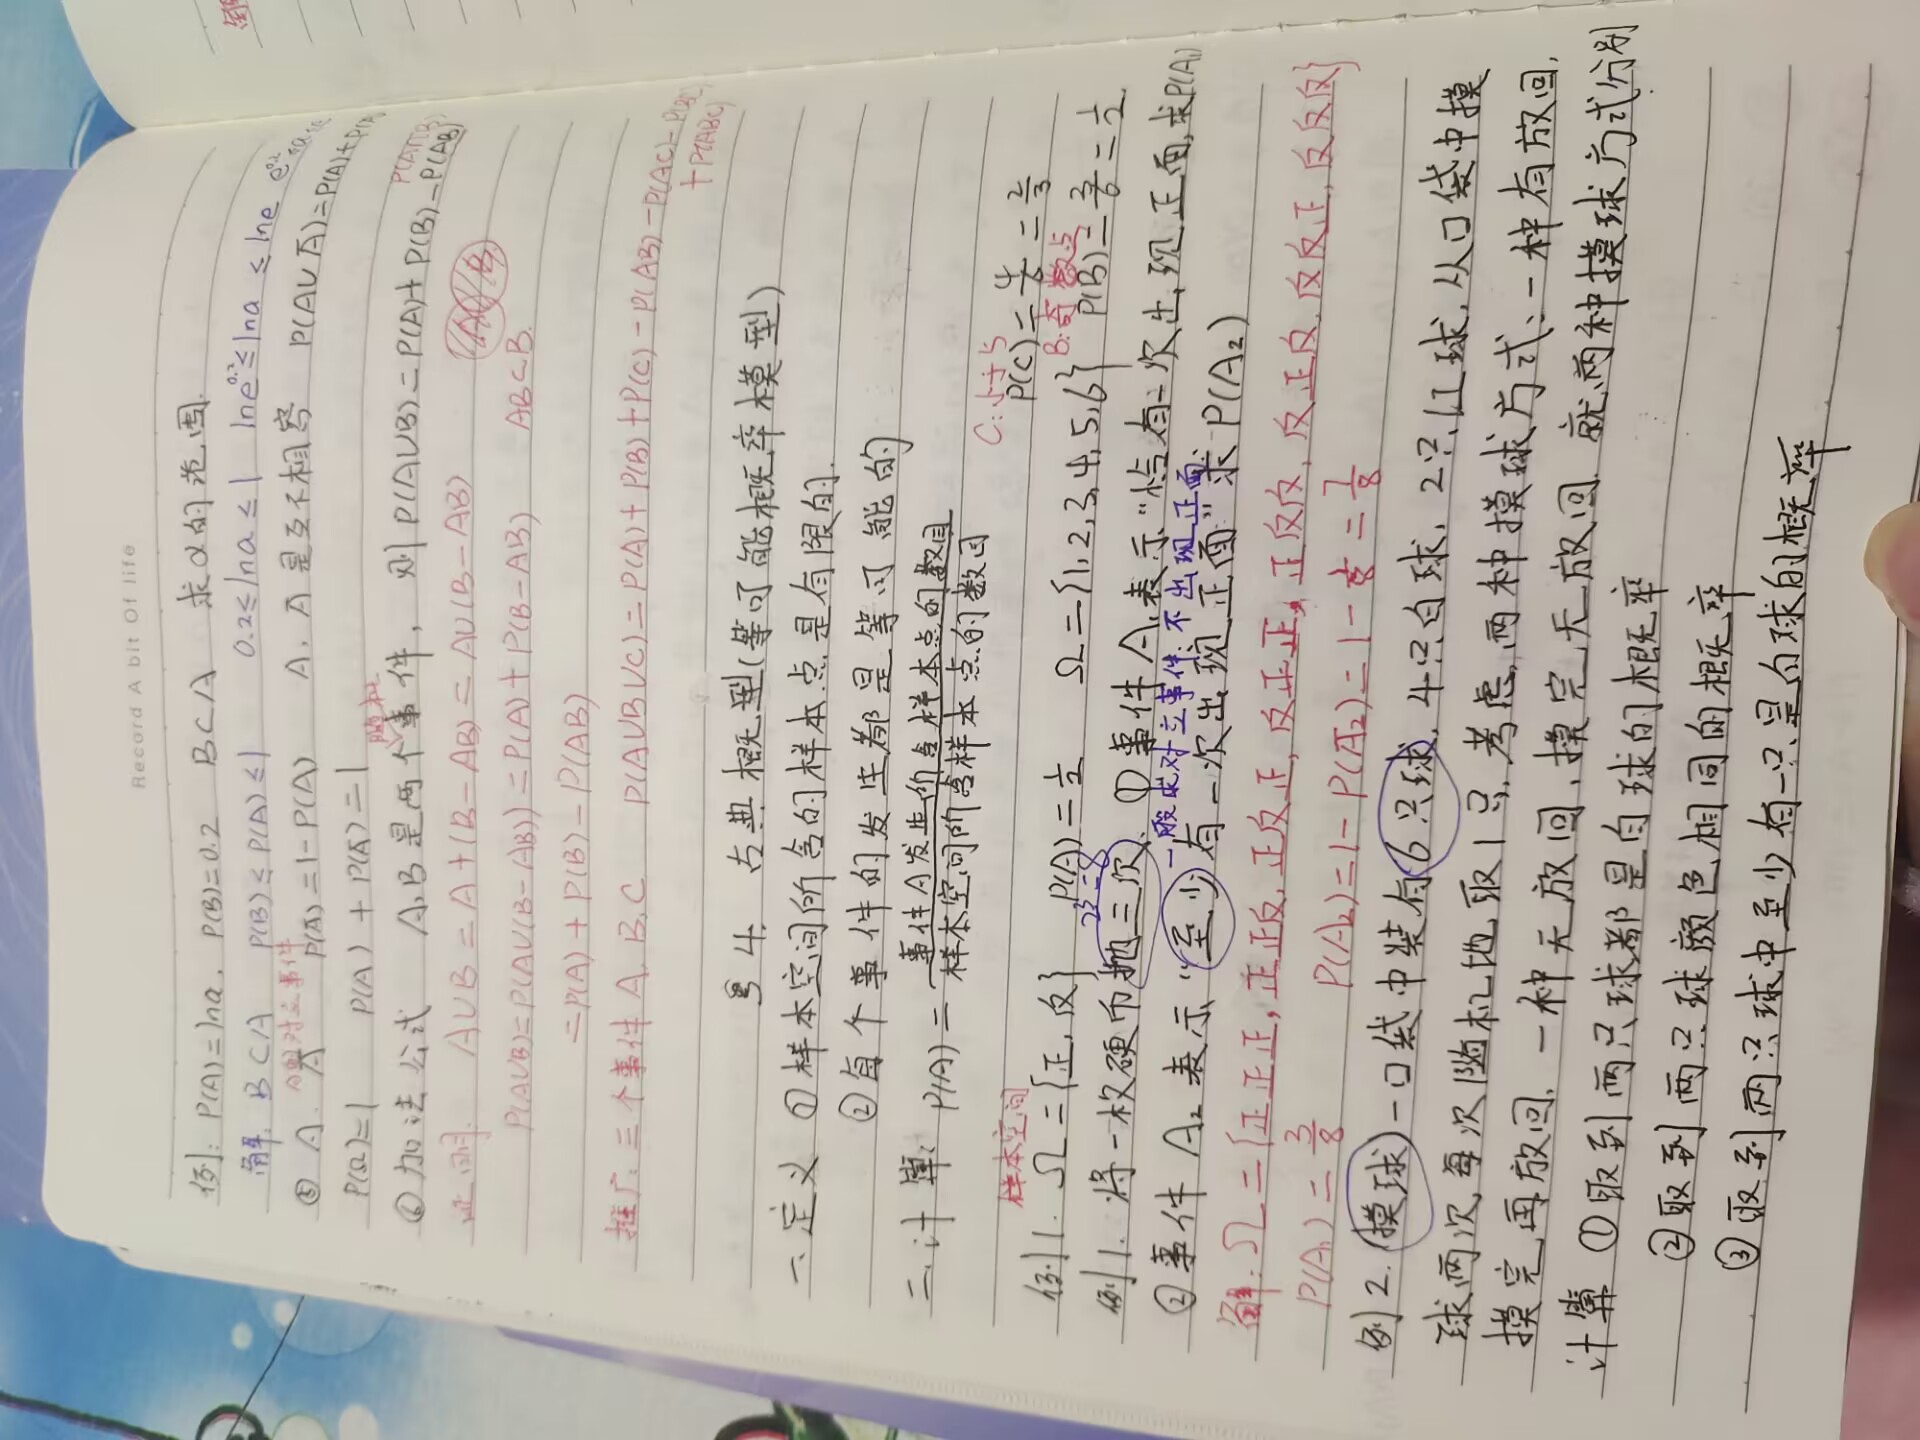 Record A bit Of life
例: P(A)=lna, P(B)=0.2 B⊂A 求a的范围.
解: B⊂A P(B)≤P(A)≤1 0.2≤lna≤1 lne^0.2≤lna≤lne e^0.2≤a≤e
A的对立事件
⑤ A. Ā P(Ā)=1-P(A) A. Ā 是互不相容 P(A∪Ā)=P(A)+P(Ā)
P(Ω)=1 P(A)+P(Ā)=1
随机
P(A∩B)
⑥加法公式 A,B是两个事件, 则P(A∪B)=P(A)+P(B)-P(AB)
证明: A∪B=A+(B-AB)=A∪(B-AB) A B
P(A∪B)=P(A∪(B-AB))=P(A)+P(B-AB) AB⊂B.
=P(A)+P(B)-P(AB)
推广: 三个事件A.B.C P(A∪B∪C)=P(A)+P(B)+P(C)-P(AB)-P(AC)-P(BC)
+P(ABC)
§4. 古典概型(等可能概率模型)
一.定义 ①样本空间所含的样本点是有限的.
②每个事件的发生都是等可能的
二.计算: P(A)=事件A发生所含样本点的数目
样本空间所含样本点的数目
C:小于5
样本空间 P(C)=4/6=2/3
B:奇数点
例1. Ω={正,反} P(A)=1/2 Ω={1,2,3,4,5,6} P(B)=3/6=1/2.
2³=8
例1. 将一枚硬币抛三次. ①事件A₁表示“恰有一次出现正面,求P(A₁)
一般求对立事件:不出现正面
②事件A₂表示“至少有一次出现正面”求P(A₂)
解: Ω={正正正,正正反,正反正,反正正,正反反,反正反,反反正,反反反}
P(A₁)=3/8 P(A₂)=1-P(Ā₂)=1-1/8=7/8
例2.(摸球)一口袋中装有6只球,4只白球,2只红球,从口袋中摸
球两次,每次随机地取1只,考虑两种摸球方式:一种有放回,
摸完再放回,一种无放回,摸完无放回.就两种摸球方式分别
计算 ①取到两只球都是白球的概率
②取到两只球颜色相同的概率
③取到两只球中至少有一只是白球的概率